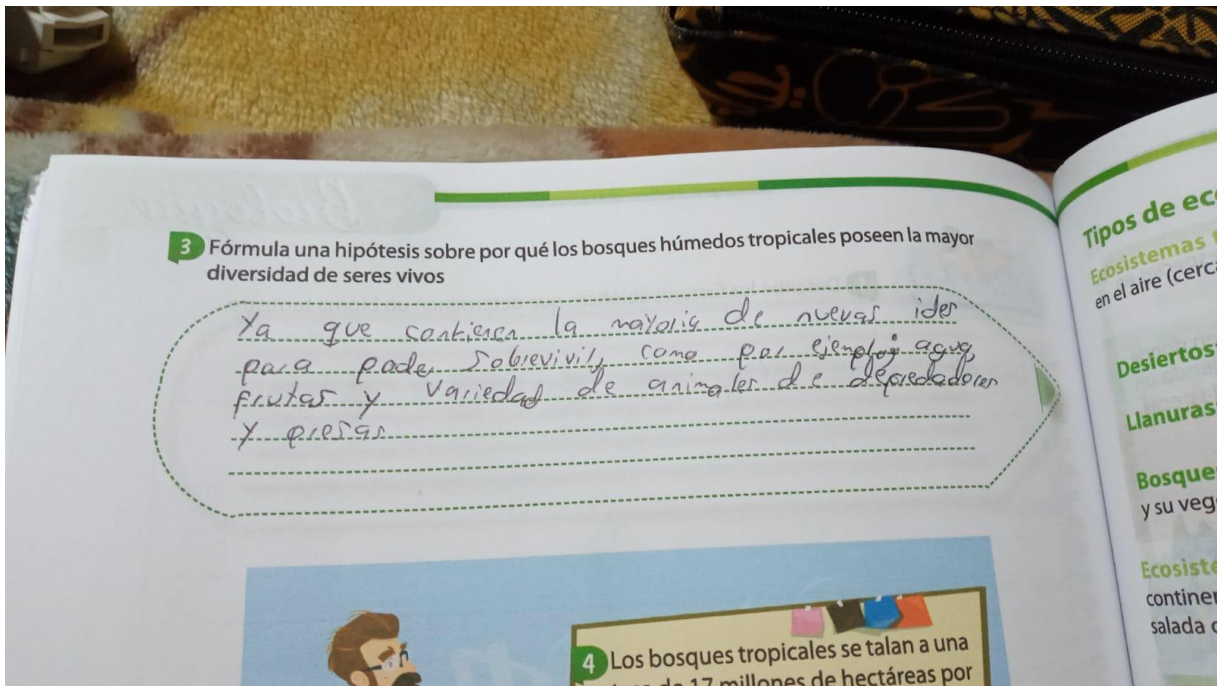 3 Fórmula una hipótesis sobre por qué los bosques húmedos tropicales poseen la mayor
diversidad de seres vivos
Ya que contienen la mayoria de nuevas ider
para poder sobrevivir, como por ejemplo: agua,
frutas y variedad de animales de depredadores
y presas
4 Los bosques tropicales se talan a una
de 17 millones de hectáreas por
Tipos de ec
Ecosistemas
en el aire (cerca
Desiertos
Llanuras
Bosque
y su veg
Ecosiste
continen
salada